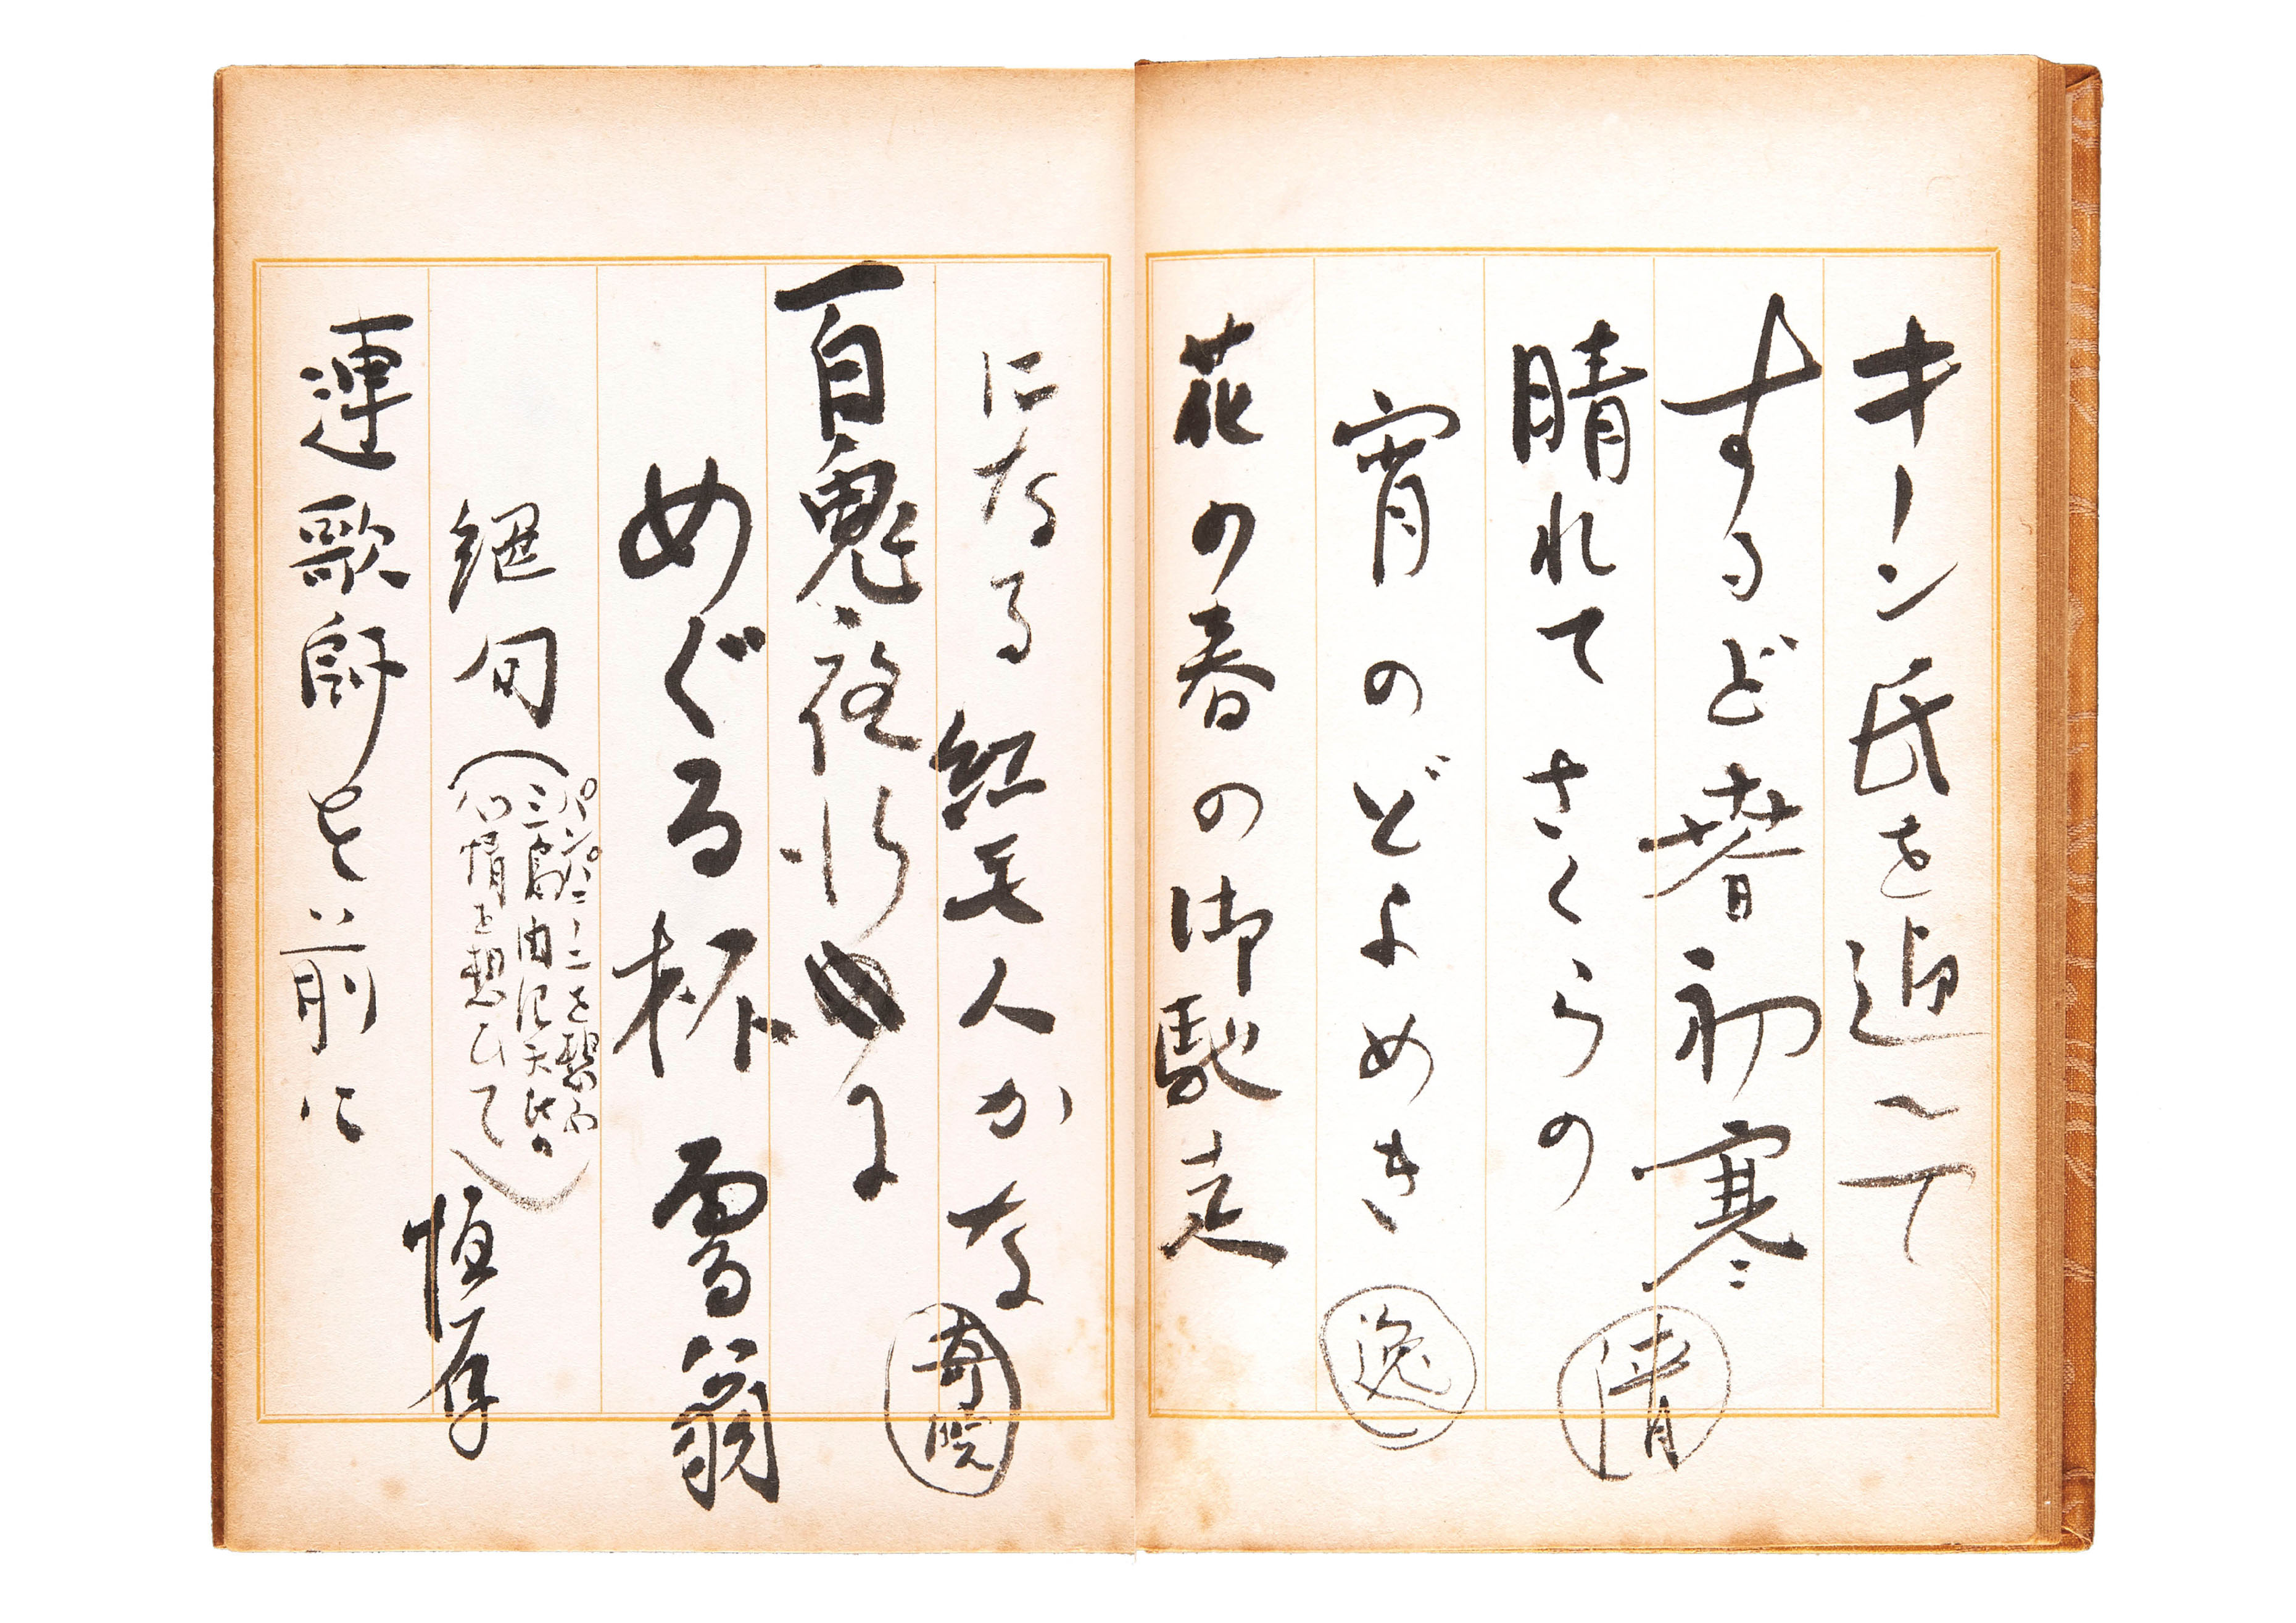 キーン氏を迎へて
するど 初寒
晴れてさくらの
宵のどよめき 逸
花の春の御馳走
になる紅毛人かな
百鬼夜行
めぐる杯 雪翁
絶句
三島由紀夫
心情を想ひて
恒存
連歌師を前に